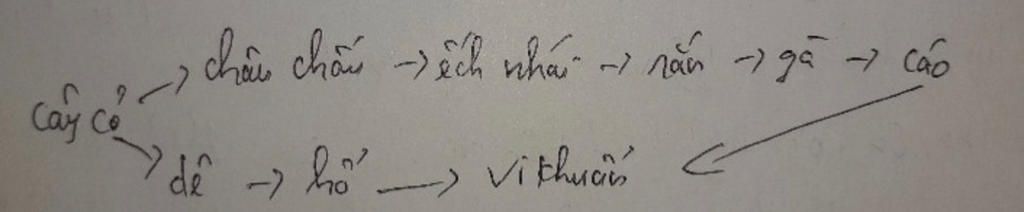 châu chấu → ếch nhái → rắn → gà → cáo
cây cỏ
dê → hổ → vi khuẩn